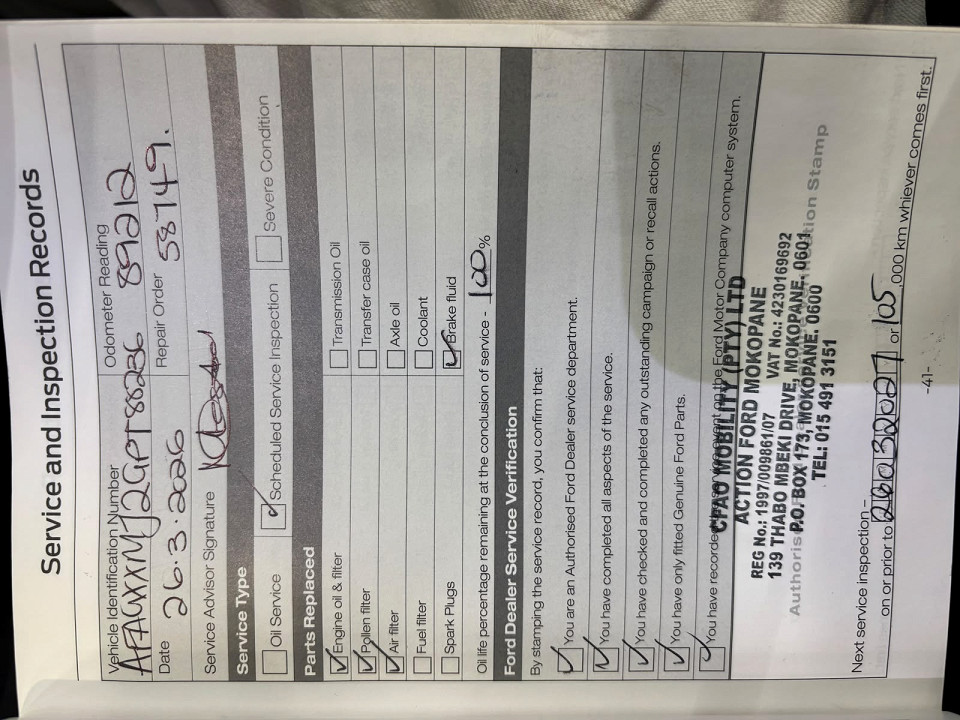 Service and Inspection Records
Vehicle Identification Number
AFAGXXMJ2GPT88236
Odometer Reading
89212
Date 26.3.2026
Repair Order 58749.
Service Advisor Signature
Service Type
Oil Service
Scheduled Service Inspection
Severe Condition
Parts Replaced
Engine oil & filter
Transmission Oil
Pollen filter
Transfer case oil
Air filter
Axle oil
Fuel filter
Coolant
Spark Plugs
Brake fluid
Oil life percentage remaining at the conclusion of service - 100%
Ford Dealer Service Verification
By stamping the service record, you confirm that:
You are an Authorised Ford Dealer service department.
You have completed all aspects of the service.
You have checked and completed any outstanding campaign or recall actions.
You have only fitted Genuine Ford Parts.
You have recorded the service event on the Ford Motor Company computer system.
CFAO MOBILITY (PTY) LTD
ACTION FORD MOKOPANE
REG No.: 1997/009861/07 VAT No.: 4230169692
139 THABO MBEKI DRIVE, MOKOPANE, 0601
P.O. BOX 173, MOKOPANE. 0600
TEL: 015 491 3151
Next service inspection –
on or prior to 26032027 or 105,000 km whiever comes first.
-41-